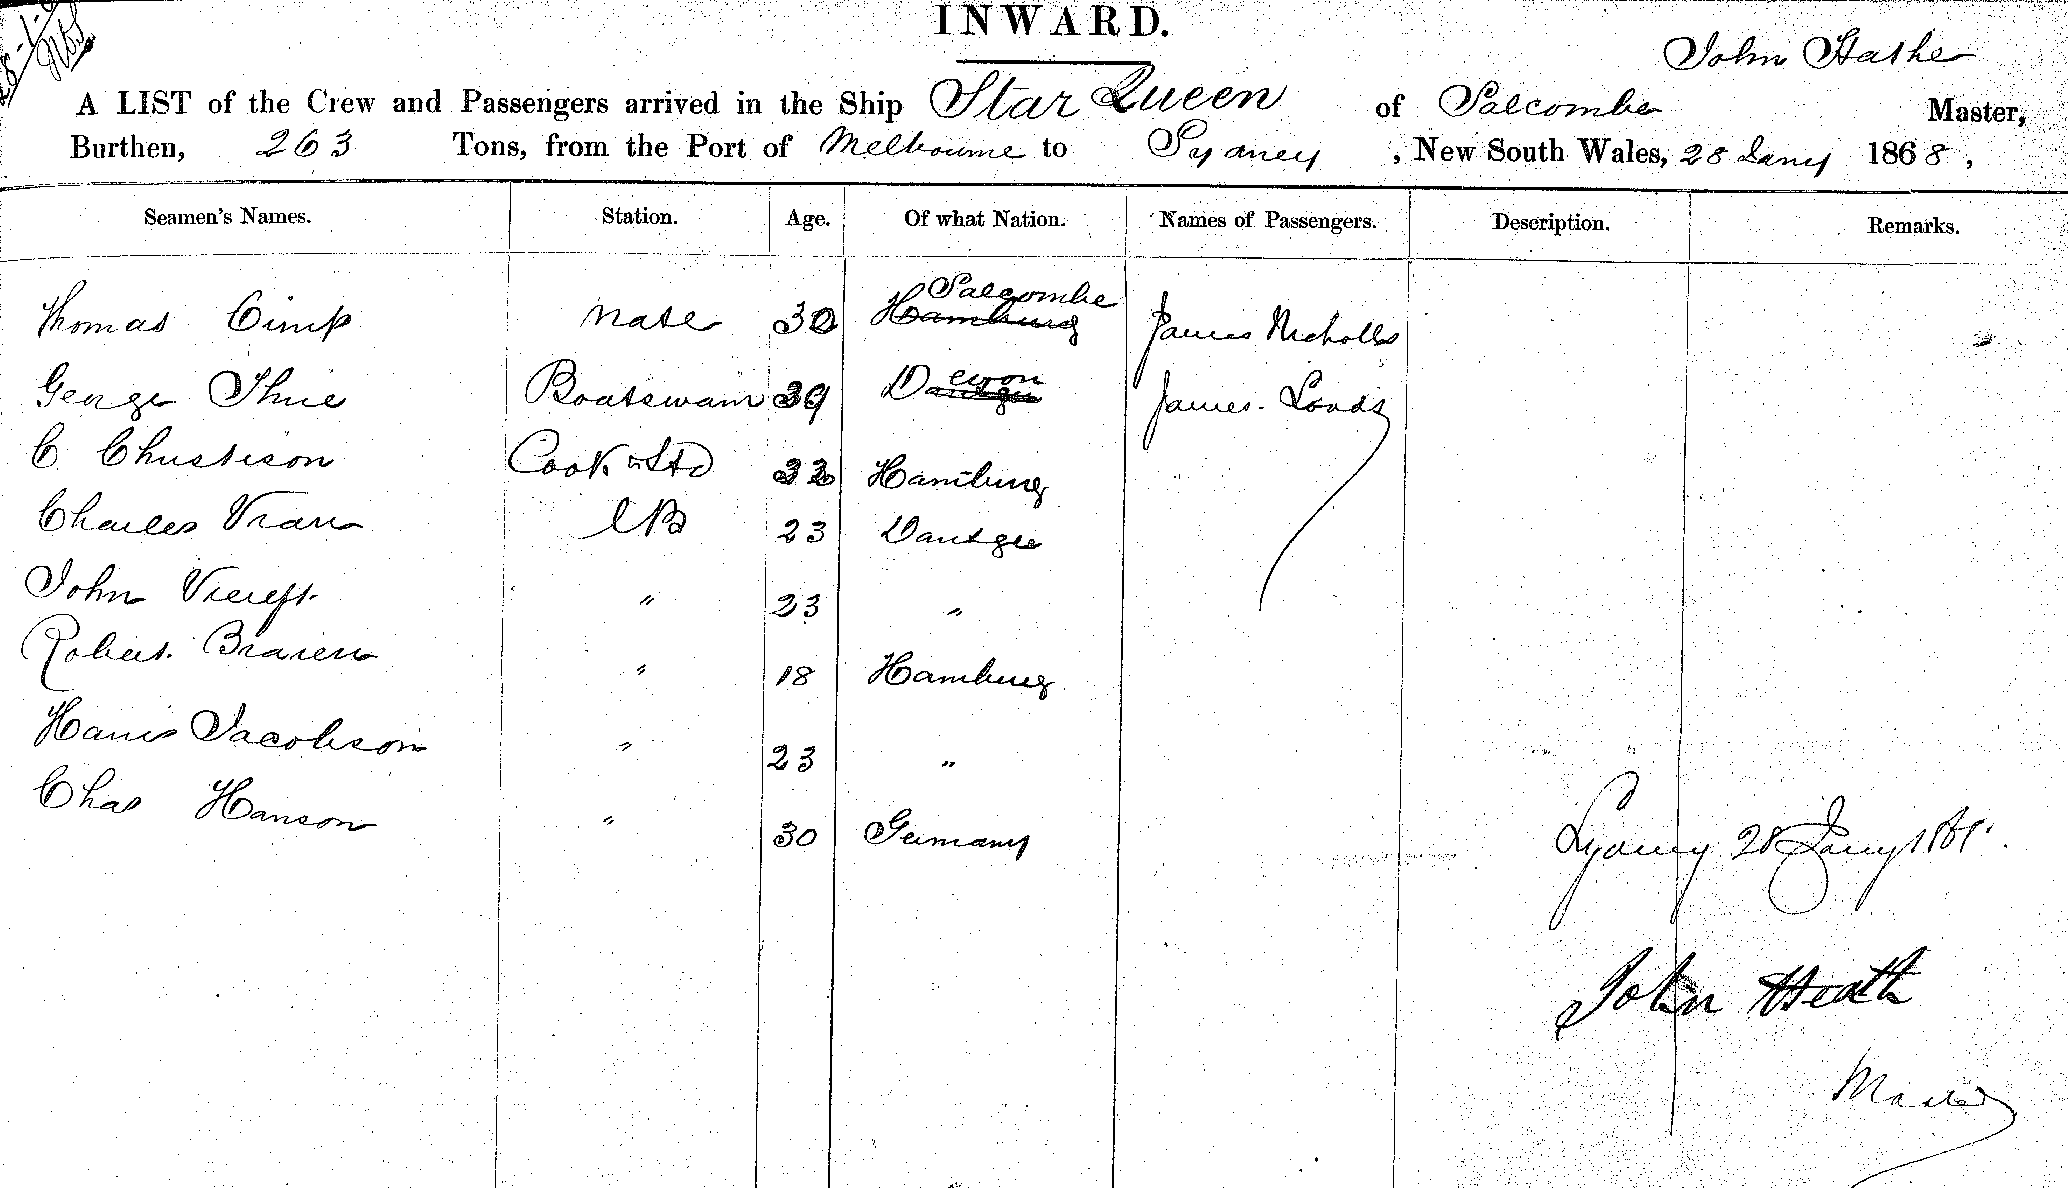 INWARD.
John Heathe
A LIST of the Crew and Passengers arrived in the Ship Star Queen of Salcombe Master,
Burthen, 263 Tons, from the Port of Melbourne to Sydney, New South Wales, 28 Jany 1868,
Seamen's Names. Station. Age. Of what Nation. Names of Passengers. Description. Remarks.
Salcombe
Thomas Mate 30 Hamburg James Nicholls
George Boatswain 39 Devon James
C Christison Cook & Std 32 Hamburg
Charles AB 23 Dantzic
John " 23 "
Robert " 18 Hamburg
Hans Jacobson " 23 "
Chas Hanson " 30 Germany
Sydney 28 Jany 1868
John Heath
Master